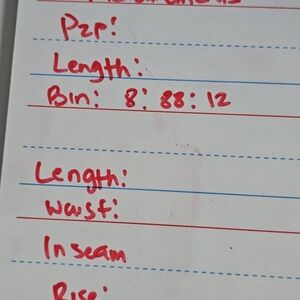 P2P:
Length:
Bin: 8: 88: 12
Length:
Waist:
Inseam
Rise: